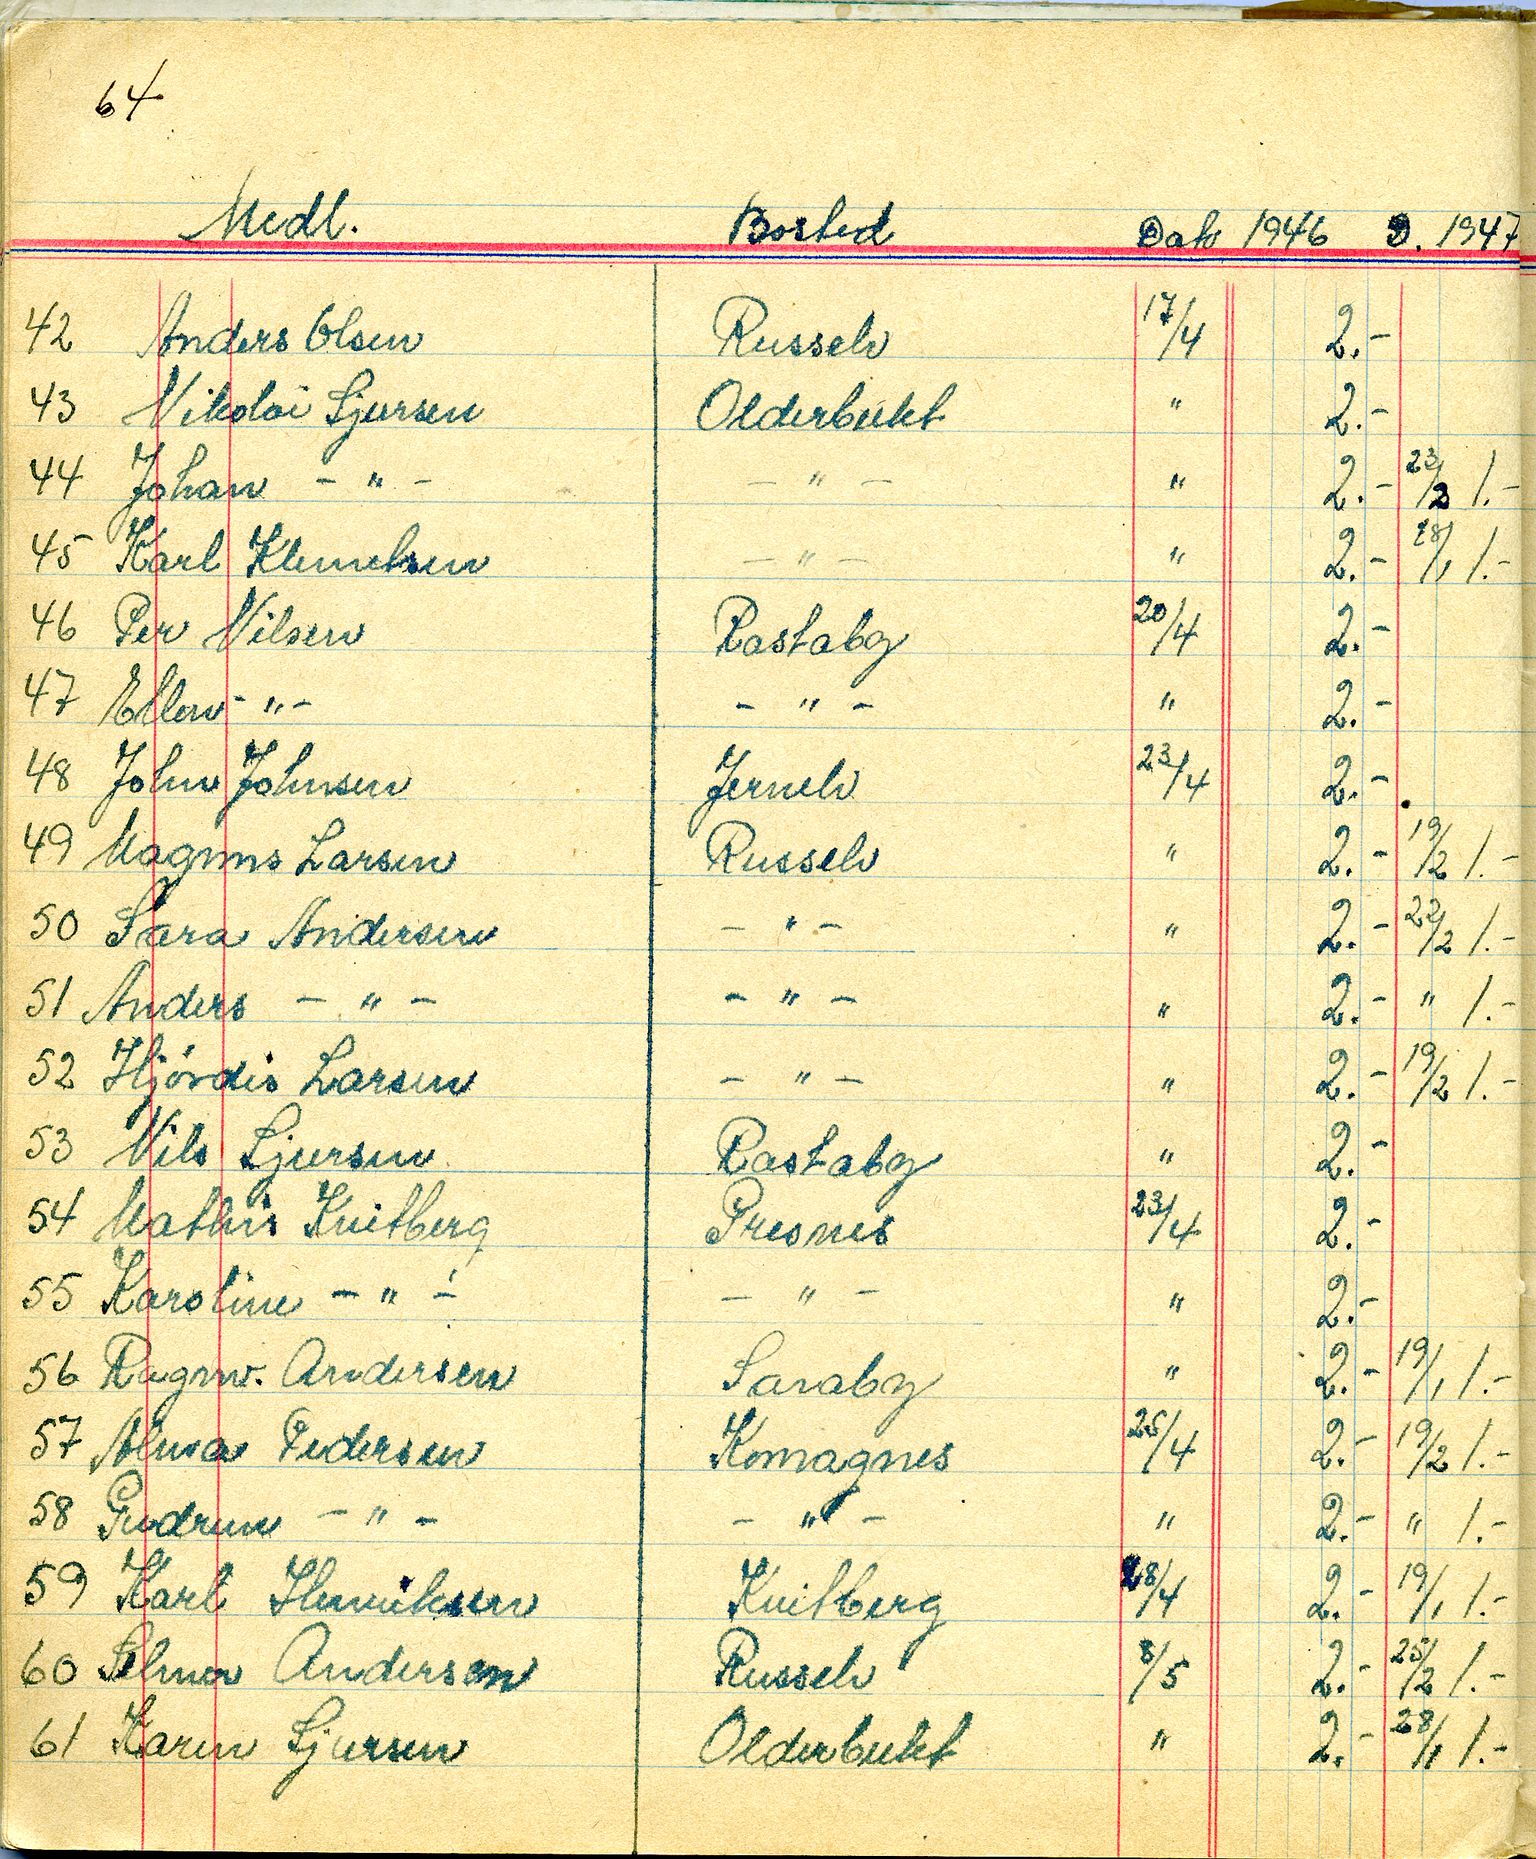 64
Medl. Bosted Dato 1946 D. 1947
42 Anders Olsen Russelv 17/4 2.-
43 Nikolai Sjursen Olderbukt " 2.-
44 Johan - " - - " - " 2.- 23/2 1.-
45 Karl Klemetsen - " - " 2.- 28/1 1.-
46 Per Nilsen Rastaby 20/4 2.-
47 Ellen - " - - " - " 2.-
48 John Johnsen Jernelv 23/4 2.-
49 Magnus Larsen Russelv " 2.- 19/2 1.-
50 Sara Andersen - " - " 2.- 22/2 1.-
51 Anders - " - - " - " 2.- " 1.-
52 Hjördis Larsen - " - " 2.- 19/2 1.-
53 Nils Sjursen Rastaby " 2.-
54 Mathis Kvitberg Presnes 23/4 2.-
55 Karoline - " - - " - " 2.-
56 Ragnv. Andersen Saraby " 2.- 19/1 1.-
57 Alma Pedersen Komagnes 25/4 2.- 19/2 1.-
58 Gudrun - " - - " - " 2.- " 1.-
59 Karl Henriksen Kvitberg 28/4 2.- 19/1 1.-
60 Selmer Andersen Russelv 8/5 2.- 25/2 1.-
61 Karen Sjursen Olderbukt " 2.- 28/1 1.-